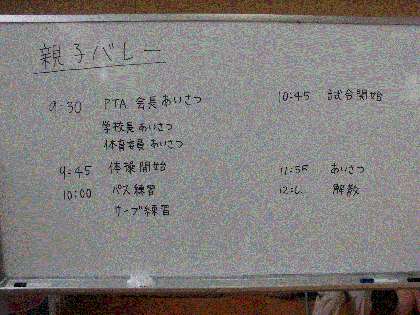 親子バレー
9:30 PTA 会長あいさつ
学校長あいさつ
体育委員あいさつ
9:45 体操開始
10:00 パス練習
サーブ練習
10:45 試合開始
11:55 あいさつ
解散